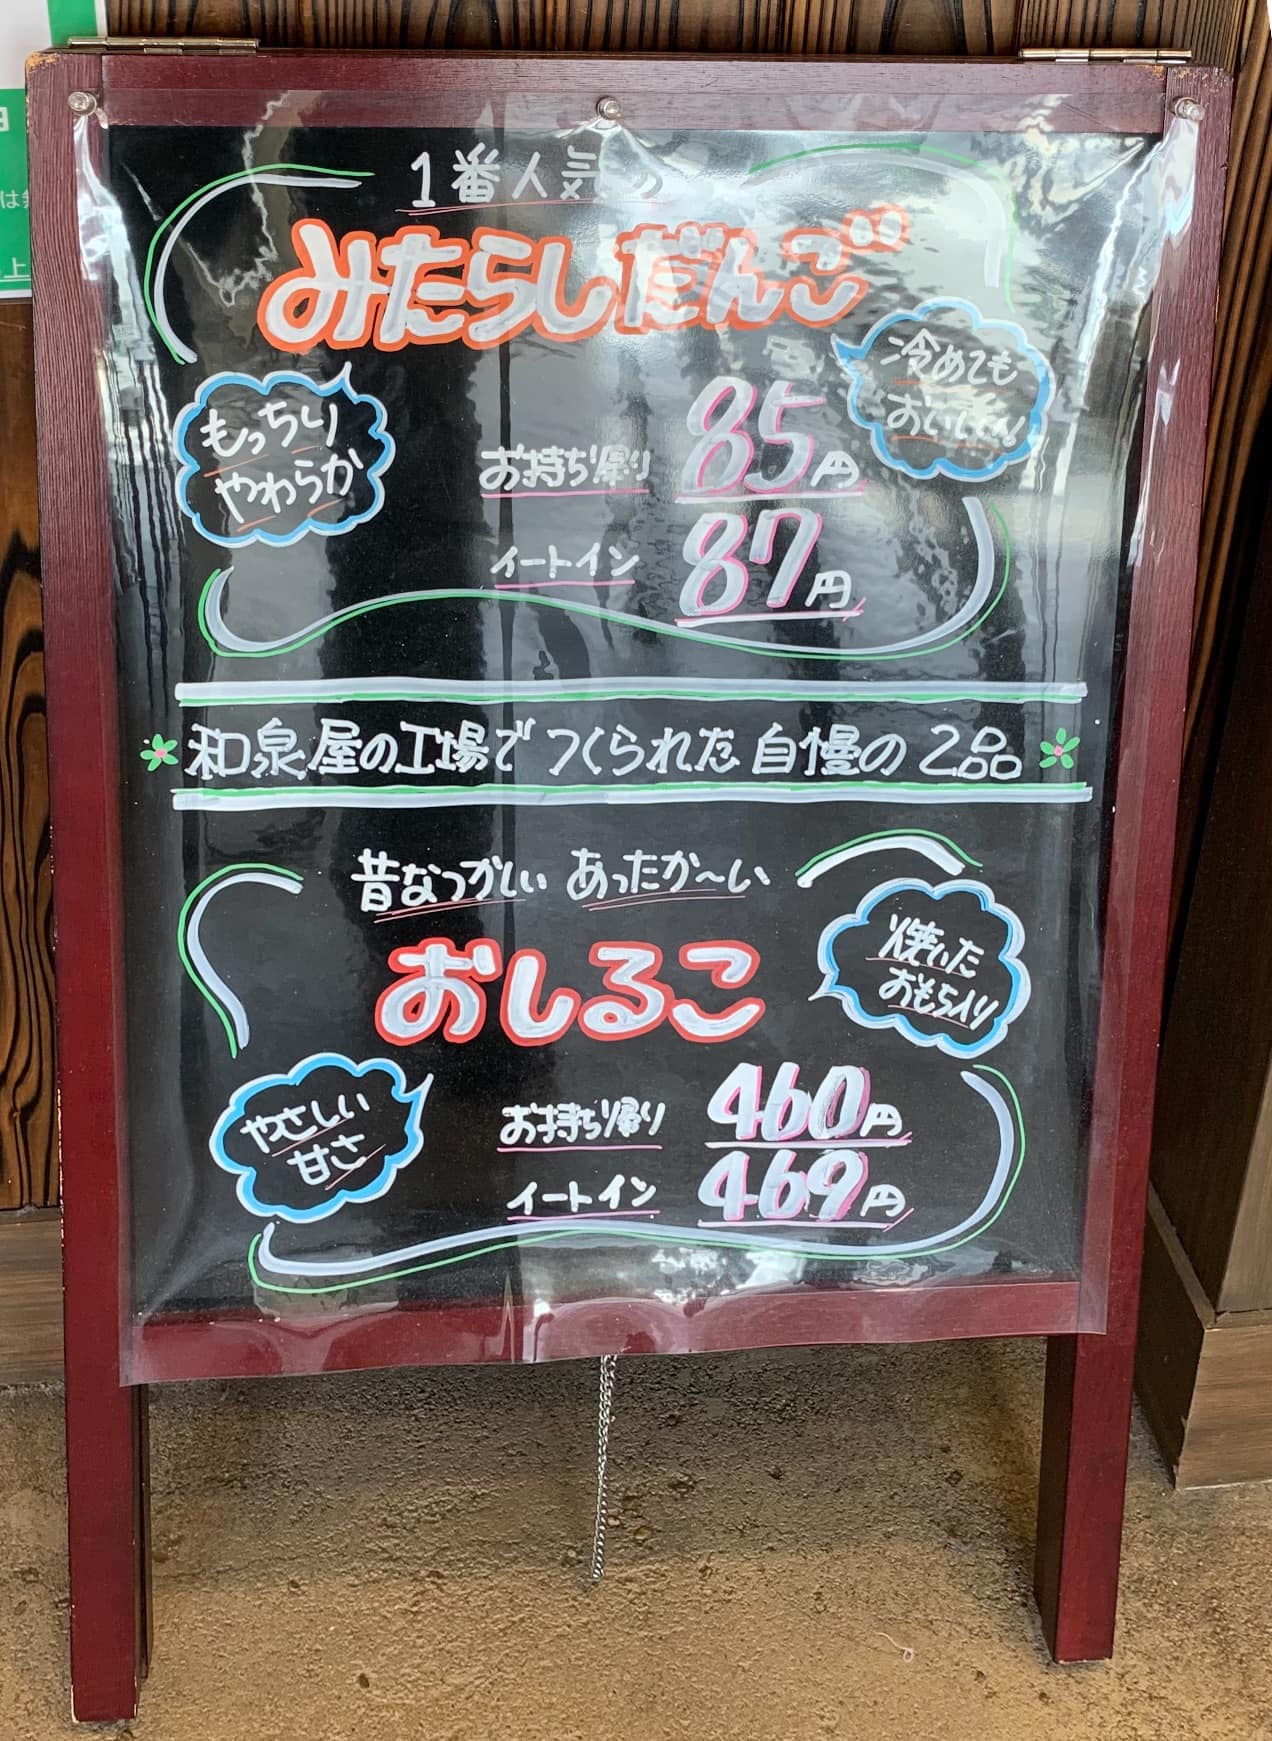 1番人気の
みたらしだんご
冷めても
おいしい!
もっちり
やわらか
お持ち帰り 85円
イートイン 87円
和泉屋の工場でつくられた自慢の2品
昔なつかしい あったか〜い
おしるこ
焼いた
おもち入り
やさしい
甘さ
お持ち帰り 460円
イートイン 469円